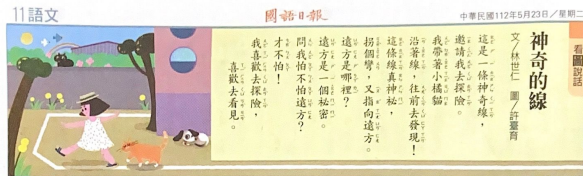 11語文
國語日報
中華民國112年5月23日／星期二
看圖說話
神奇的線
文／林世仁 圖／許臺育
這是一條神奇線，
邀請我去探險。
我帶著小橘貓，
沿著線，往前去發現！
這條線真神祕，
拐個彎，又指向遠方。
遠方是哪裡？
遠方是一個祕密。
問我怕不怕遠方？
才不怕！
我喜歡去探險，
喜歡去看見。